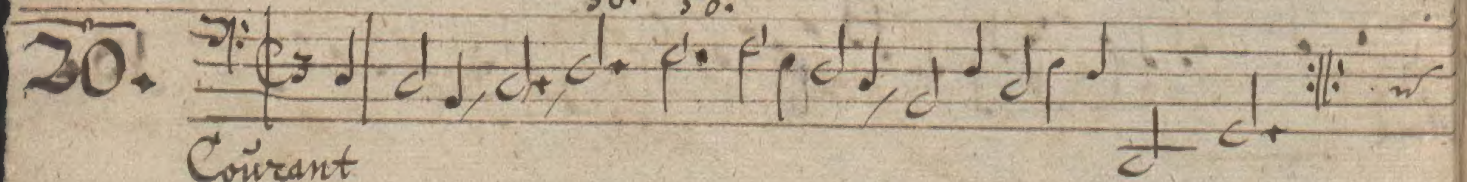 20.
Courant